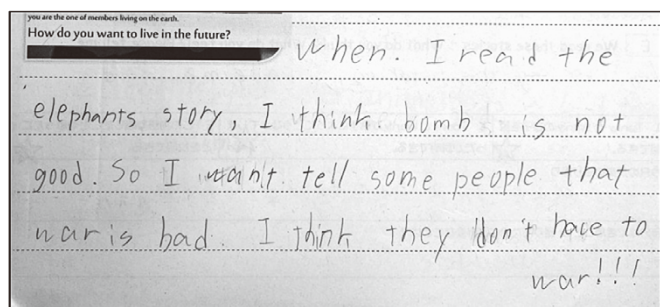 you are the one of members living on the earth.
How do you want to live in the future?
When. I read the
elephants story, I think. bomb is not
good. So I wan't tell some people that
war is bad. I think they don't have to
war!!!